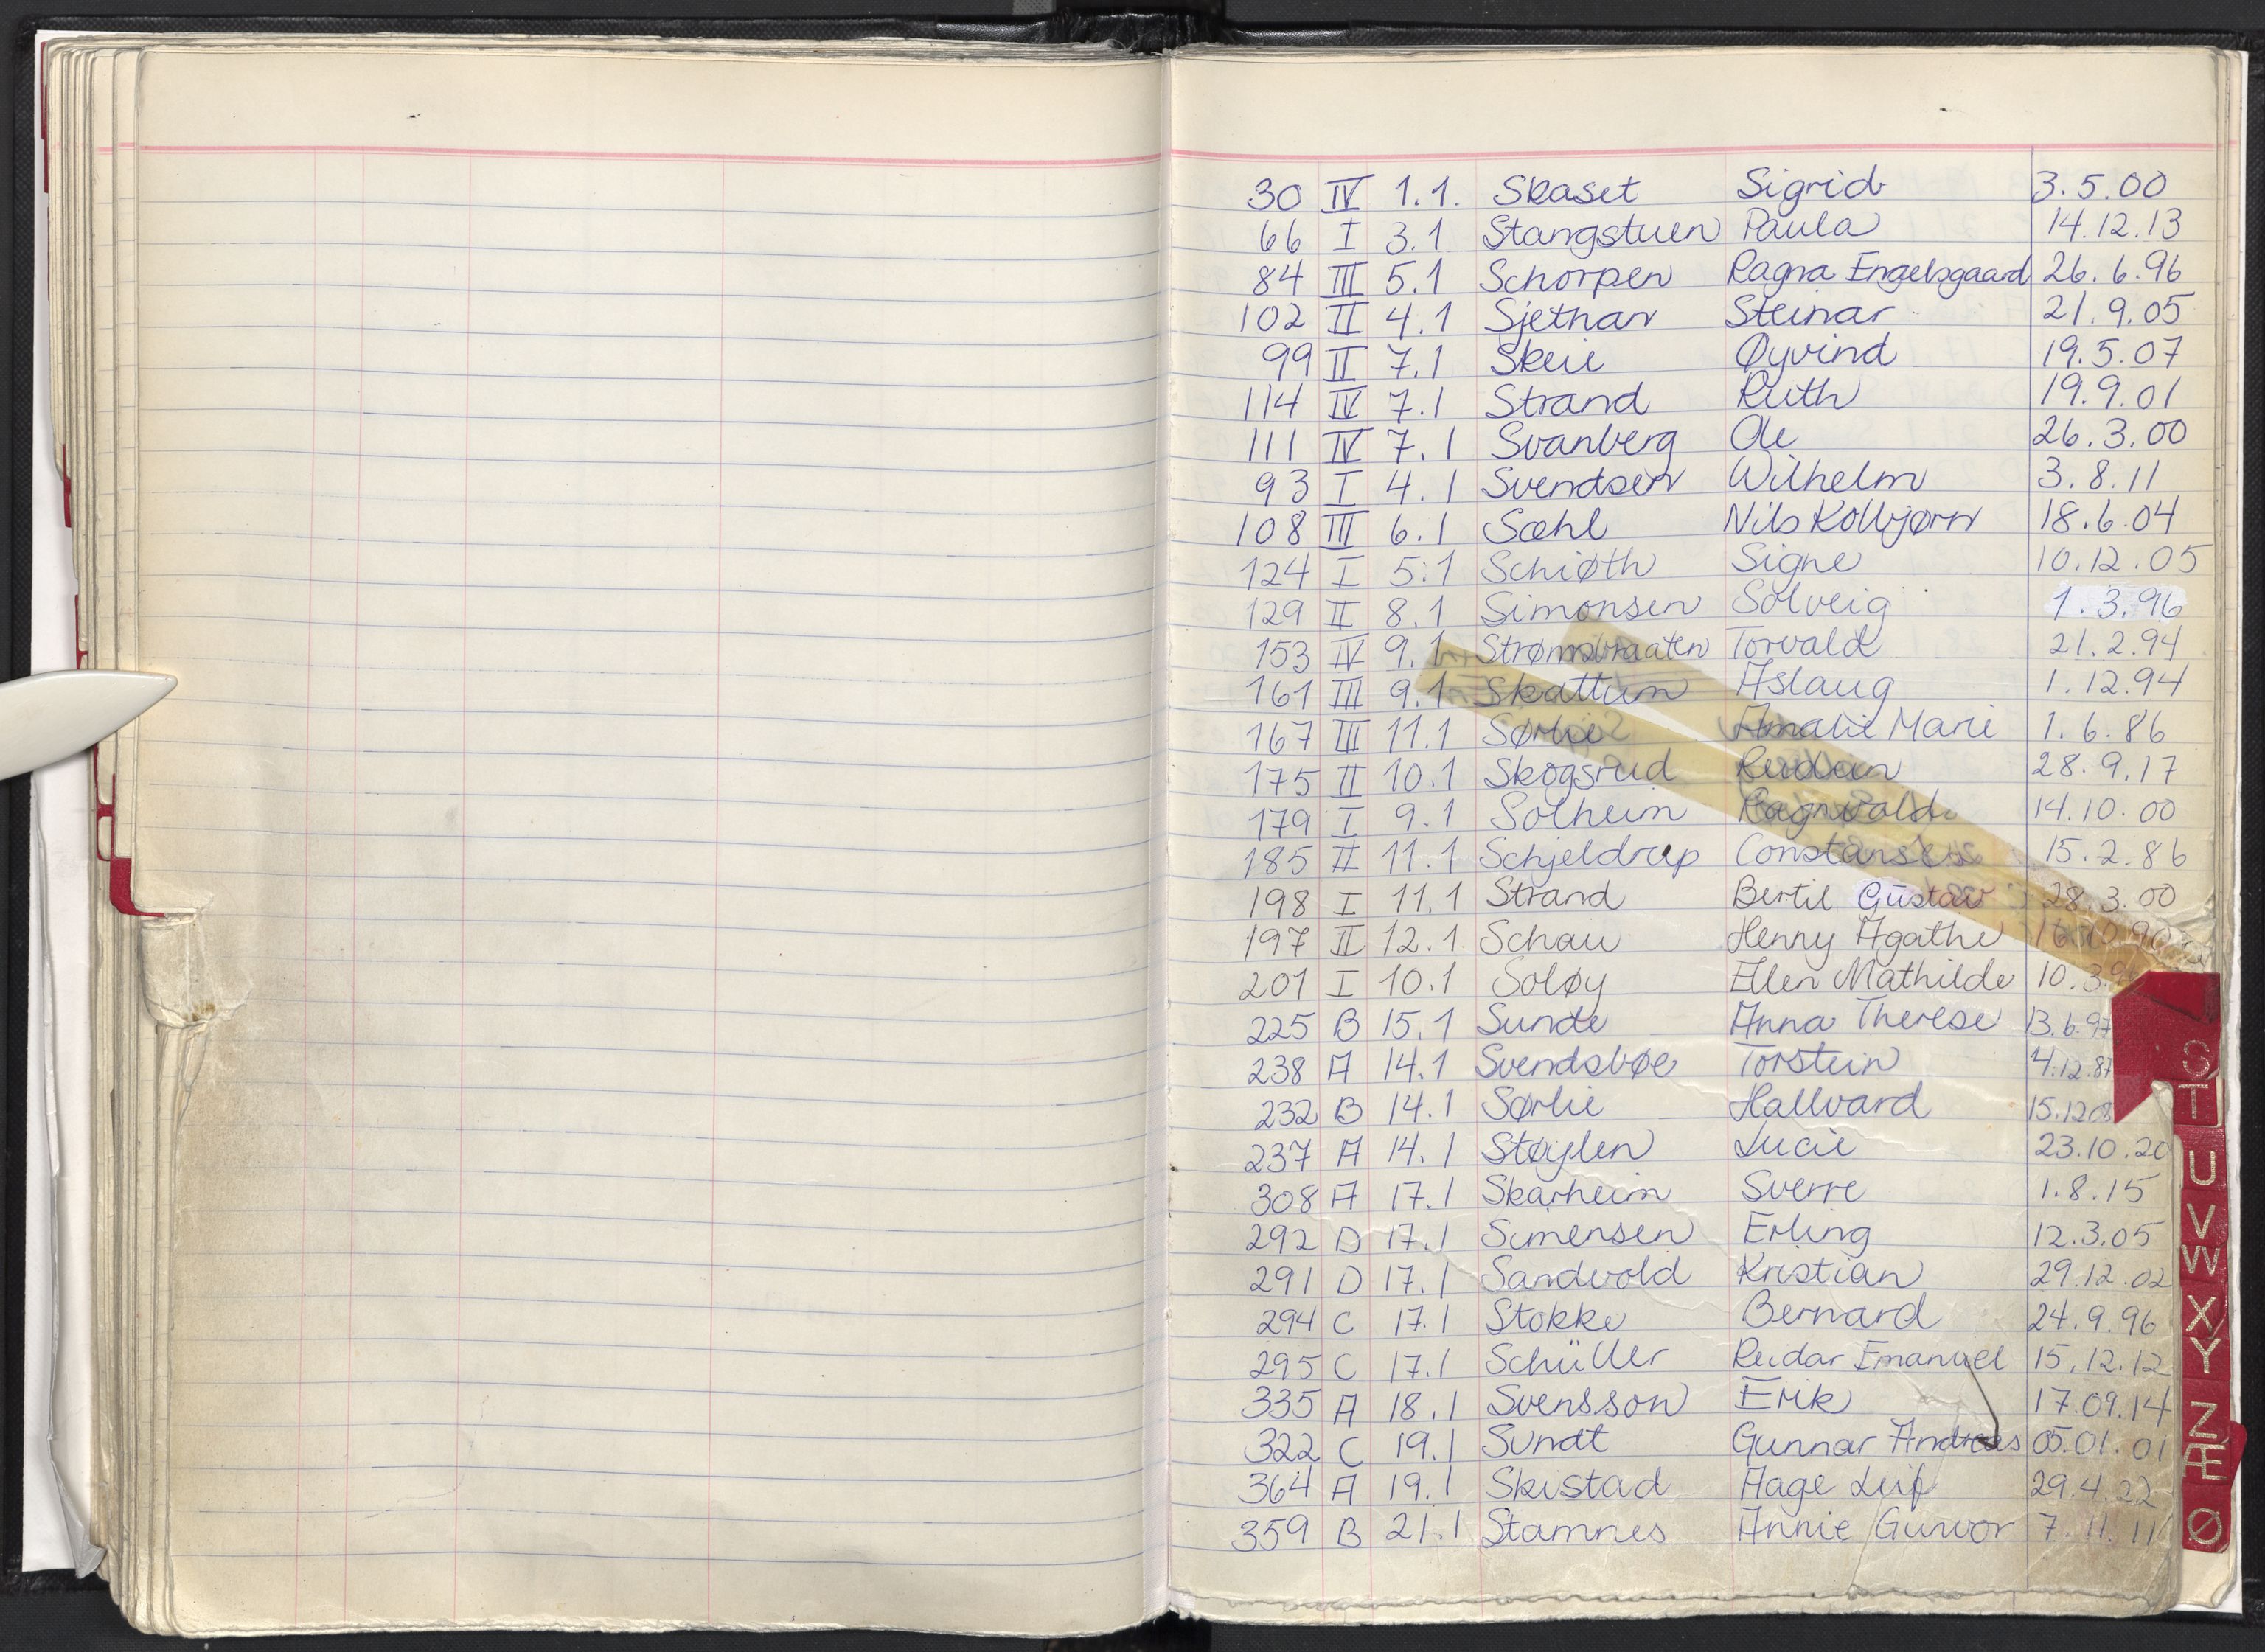 30 IV 1.1. Skaset Sigrid 3.5.00
66 I 3.1 Stangstuen Paula 14.12.13
84 III 5.1 Schorpen Ragna Engelsgaard 26.6.96
102 II 4.1 Sjethan Steinar 21.9.05
99 II 7.1 Skeie Øyvind 19.5.07
114 IV 7.1 Strand Ruth 19.9.01
111 IV 7.1 Svanberg Ole 26.3.00
93 I 4.1 Svendsen Wilhelm 3.8.11
108 III 6.1 Sæhl Nils Kolbjørn 18.6.04
124 I 5.1 Schiøth Signe 10.12.05
129 II 8.1 Simonsen Solveig 1.3.96
153 IV 9.1 Strømsbraaten Torvald 21.2.94
161 III 9.1 Skattum Aslaug 1.12.94
167 III 11.1 Sørlie Amalie Marie 1.6.86
175 II 10.1 Skogsrud Reidun 28.9.17
179 I 9.1 Solheim Ragnvald 14.10.00
185 II 11.1 Schjeldrup 15.2.86
198 I 11.1 Strand Bertil Gustav 28.3.00
197 II 12.1 Schau Henny Agathe
201 I 10.1 Soløy Ellen Mathilde
225 B 15.1 Sunde Anna Therese 13.6.97
238 A 14.1 Svendsbøe Torstein 4.12.87
232 B 14.1 Sørlie Hallvard 15.12.08
237 A 14.1 Støylen Lucie 23.10.20
308 A 17.1 Skarheim Sverre 1.8.15
292 D 17.1 Simensen Erling 12.3.05
291 D 17.1 Sandvold Kristian 29.12.02
294 C 17.1 Stokke Bernard 24.9.96
295 C 17.1 Schüller Reidar Emanuel 15.12.12
335 A 18.1 Svensson Erik 17.09.14
322 C 19.1 Sundt Gunnar Andreas 05.01.01
364 A 19.1 Skistad Aage Leif 29.4.22
359 B 21.1 Stamnes Annie Gunvor 7.11.11
S
T
U
V
W
X
Y
Z
Æ
Ø